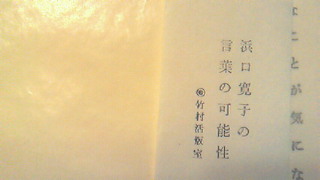 浜口寛子の
言葉の可能性
㊞竹村活版室
ことが気にな